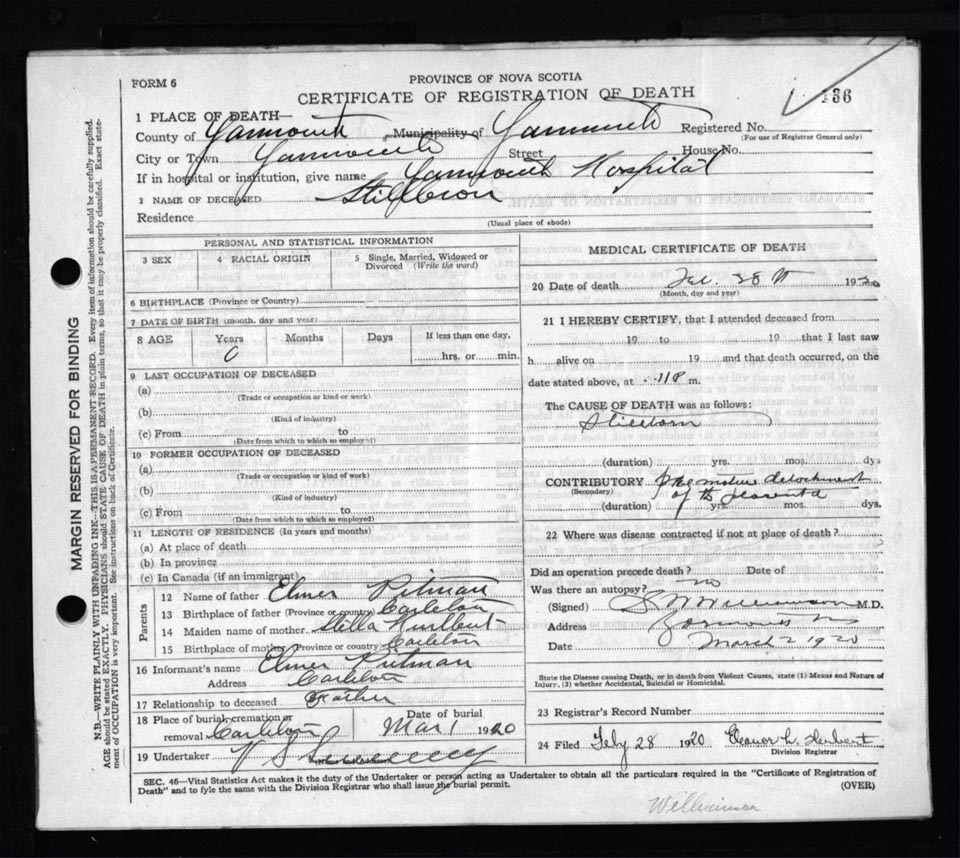 FORM 6
PROVINCE OF NOVA SCOTIA
CERTIFICATE OF REGISTRATION OF DEATH
136
1 PLACE OF DEATH—
County of Yarmouth Municipality of Yarmouth Registered No.
(For use of Registrar General only)
City or Town Yarmouth Street House No.
If in hospital or institution, give name Yarmouth Hospital
2 NAME OF DECEASED Stillborn
Residence
(Usual place of abode)
PERSONAL AND STATISTICAL INFORMATION
3 SEX
4 RACIAL ORIGIN
5 Single, Married, Widowed or Divorced (Write the word)
6 BIRTHPLACE (Province or Country)
7 DATE OF BIRTH (month, day and year)
8 AGE Years Months Days If less than one day,
0 hrs. or min.
9 LAST OCCUPATION OF DECEASED
(a)
(Trade or occupation or kind or work)
(b)
(Kind of industry)
(c) From to
(Date from which to which so employed)
10 FORMER OCCUPATION OF DECEASED
(a)
(Trade or occupation or kind of work)
(b)
(Kind of industry)
(c) From to
(Date from which to which so employed)
11 LENGTH OF RESIDENCE (In years and months)
(a) At place of death
(b) In province
(c) In Canada (if an immigrant)
Parents
12 Name of father Elmer Pitman
13 Birthplace of father (Province or country) Carleton
14 Maiden name of mother Stella Hurlbert
15 Birthplace of mother (Province or country) Carleton
16 Informant's name Elmer Pitman
Address Carleton
17 Relationship to deceased Father
18 Place of burial, cremation or removal Carleton
Date of burial
Mar 1 1920
19 Undertaker
MEDICAL CERTIFICATE OF DEATH
20 Date of death Feb. 28th 1920
(Month, day and year)
21 I HEREBY CERTIFY, that I attended deceased from
19 to 19 that I last saw
h alive on 19 and that death occurred, on the
date stated above, at 11 P m.
The CAUSE OF DEATH was as follows:
Stillborn
(duration) yrs. mos. dys
CONTRIBUTORY Premature detachment
(Secondary)
of the placenta
(duration) yrs. mos. dys.
22 Where was disease contracted if not at place of death?
Did an operation precede death? Date of
Was there an autopsy? no
(Signed) Williamson M.D.
Address Yarmouth NS
Date March 2 1920
State the Disease causing Death, or in death from Violent Causes, state (1) Means and Nature of
Injury, (2) whether Accidental, Suicidal or Homicidal.
23 Registrar's Record Number
24 Filed Feby 28 1920 Eleanor L. Herbert
Division Registrar
SEC. 46—Vital Statistics Act makes it the duty of the Undertaker or person acting as Undertaker to obtain all the particulars required in the "Certificate of Registration of
Death" and to fyle the same with the Division Registrar who shall issue the burial permit.
(OVER)
Williamson
MARGIN RESERVED FOR BINDING
N.B.—WRITE PLAINLY WITH UNFADING INK—THIS IS A PERMANENT RECORD. Every item of information should be carefully supplied.
AGE should be stated EXACTLY. PHYSICIANS should STATE CAUSE OF DEATH in plain terms, so that it may be properly classified. Exact state-
ment of OCCUPATION is very important. See instructions on back of Certificate.